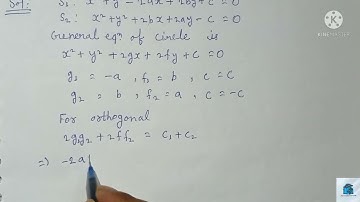 Sol:  S₁: x² + y² - 2ax + 2by + c = 0
S₂: x² + y² + 2bx + 2ay - c = 0
General eqⁿ of circle is
x² + y² + 2gx + 2fy + c = 0
g₁ = -a, f₁ = b, c = c
g₂ = b, f₂ = a, c = -c
For orthogonal
2gg₂ + 2ff₂ = c₁ + c₂
⇒) -2a